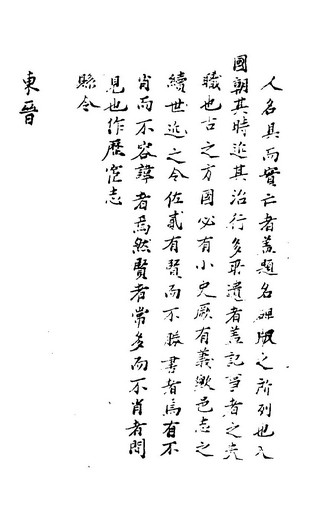 人名具而實亡者蓋題名碑版之所列也入
國朝其時近其治行多取遺者蓋記事者之失
職也古之方國必有小史厥有義歟邑志之
續世近之令佐貳有賢而不勝書者焉有不
肖而不容諱者焉然賢者常多而不肖者間
見也作歷官志
縣令
東晉